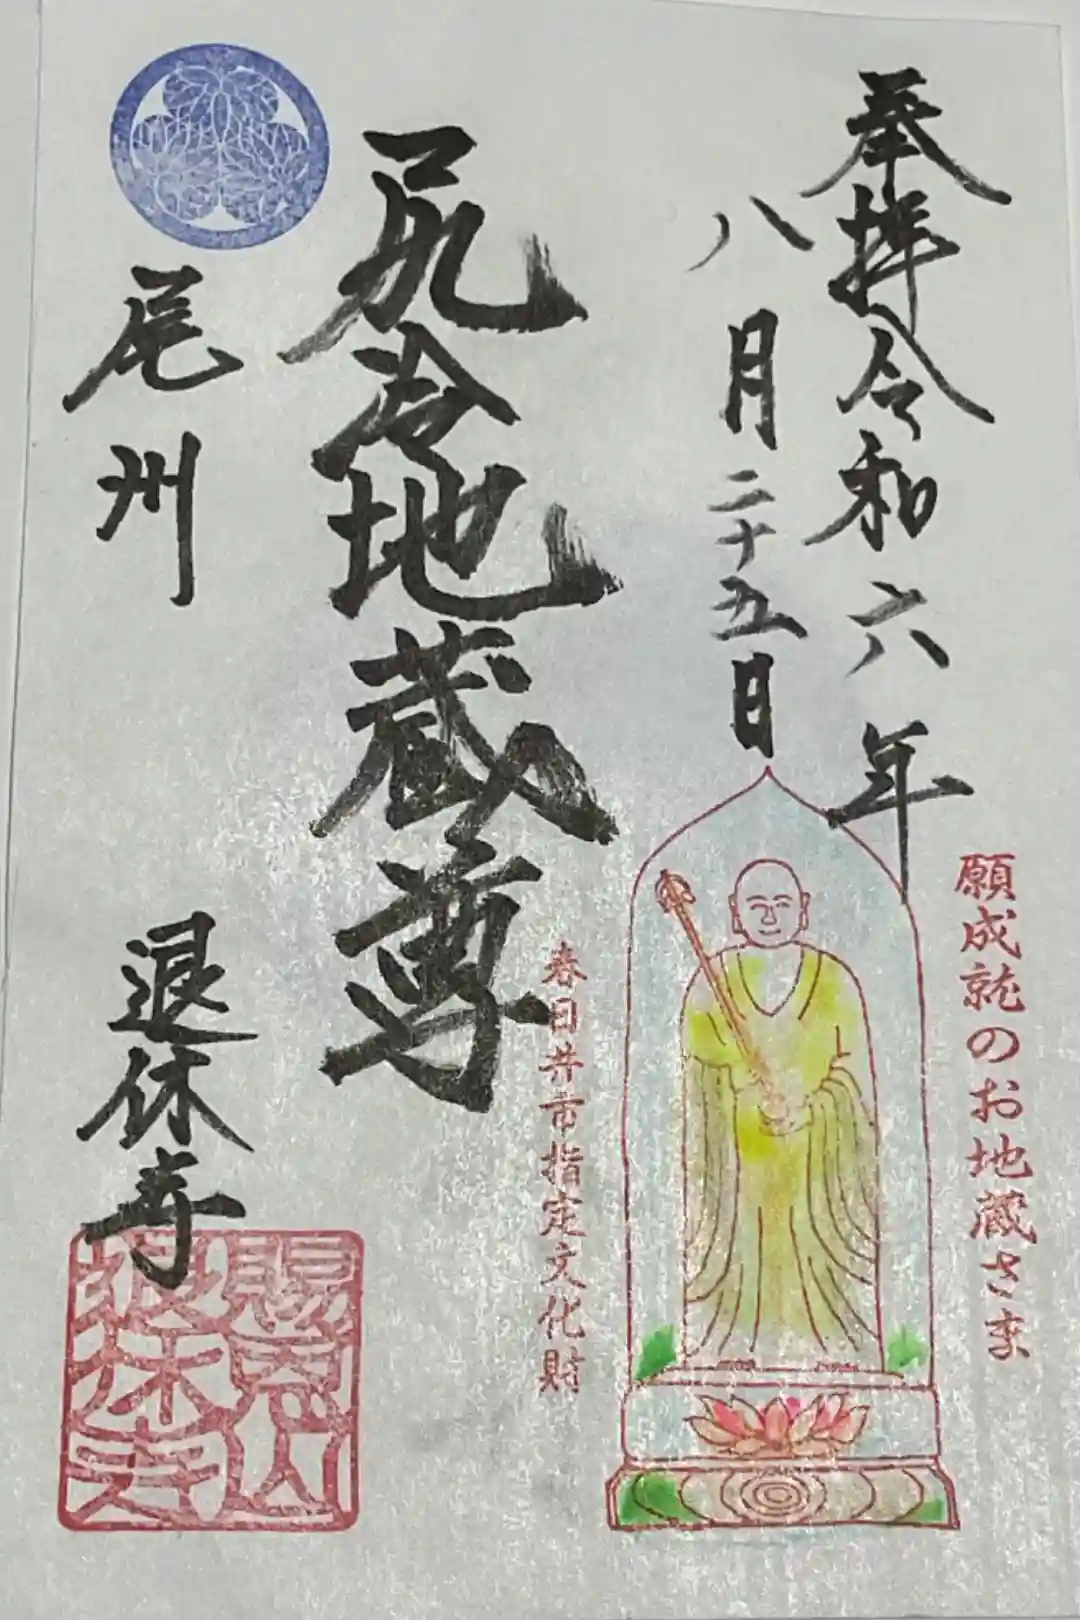 奉拝令和六年
八月二十五日
願成就のお地蔵さま
尻冷地蔵尊
春日井市指定文化財
尾州
退休寺
賜恩山
退休寺